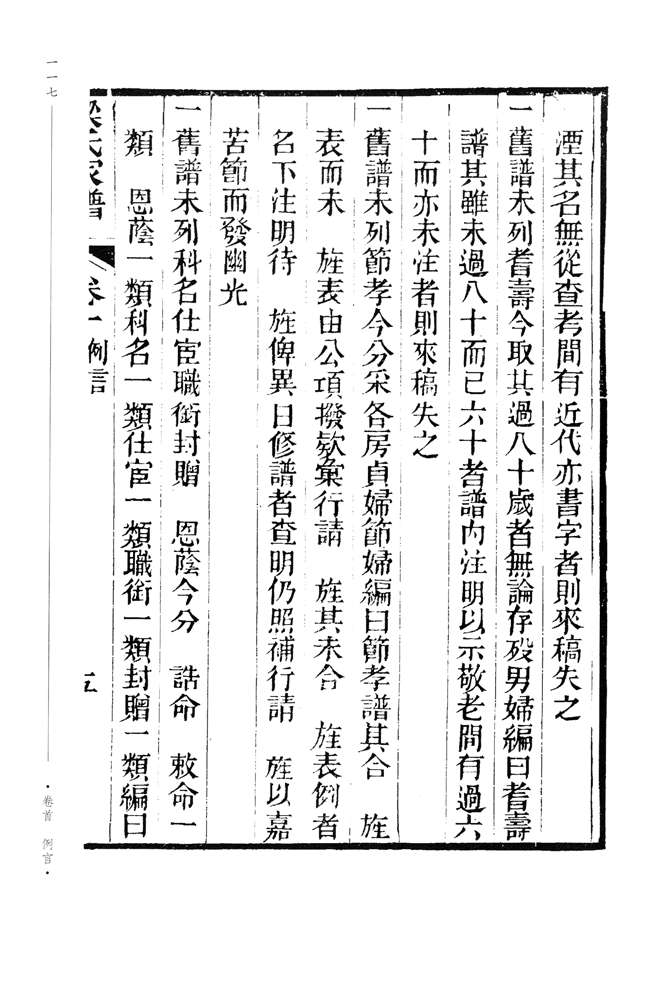 湮其名無從查考間有近代亦書字者則來稿失之
一舊譜未列耆壽今取其過八十歲者無論存歿男婦編曰耆壽
譜其雖未過八十而已六十者譜內注明以示敬老間有過六
十而亦未注者則來稿失之
一舊譜未列節孝今分采各房貞婦節婦編曰節孝譜其合　旌
表而未　旌表由公項撥欵彙行請　旌其未合　旌表例者
名下注明待　旌俾異日修譜者查明仍照補行請　旌以嘉
苦節而發幽光
一舊譜未列科名仕宦職銜封贈　恩蔭今分　誥命　敕命一
類　恩蔭一類科名一類仕宦一類職銜一類封贈一類編曰
氏家譜　卷一　例言　五
一一七
·卷首　例言·